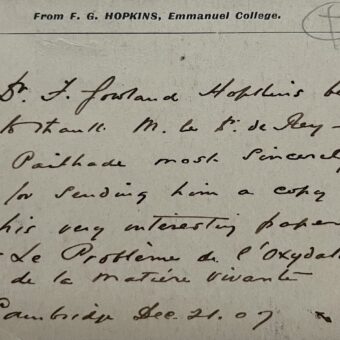 From F. G. HOPKINS, Emmanuel College.
Dr. F. Gowland Hopkins be
to thank M. le Dr. de Rey-
Pailhade most sincerely
for sending him a copy
his very interesting paper
Le Problème de l'Oxydat
de la Matière vivante
Cambridge Dec. 21. 07